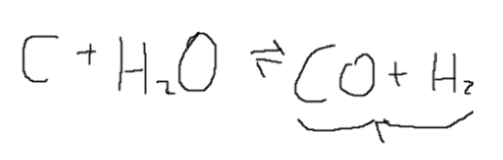 C + H₂O ⇌ CO + H₂